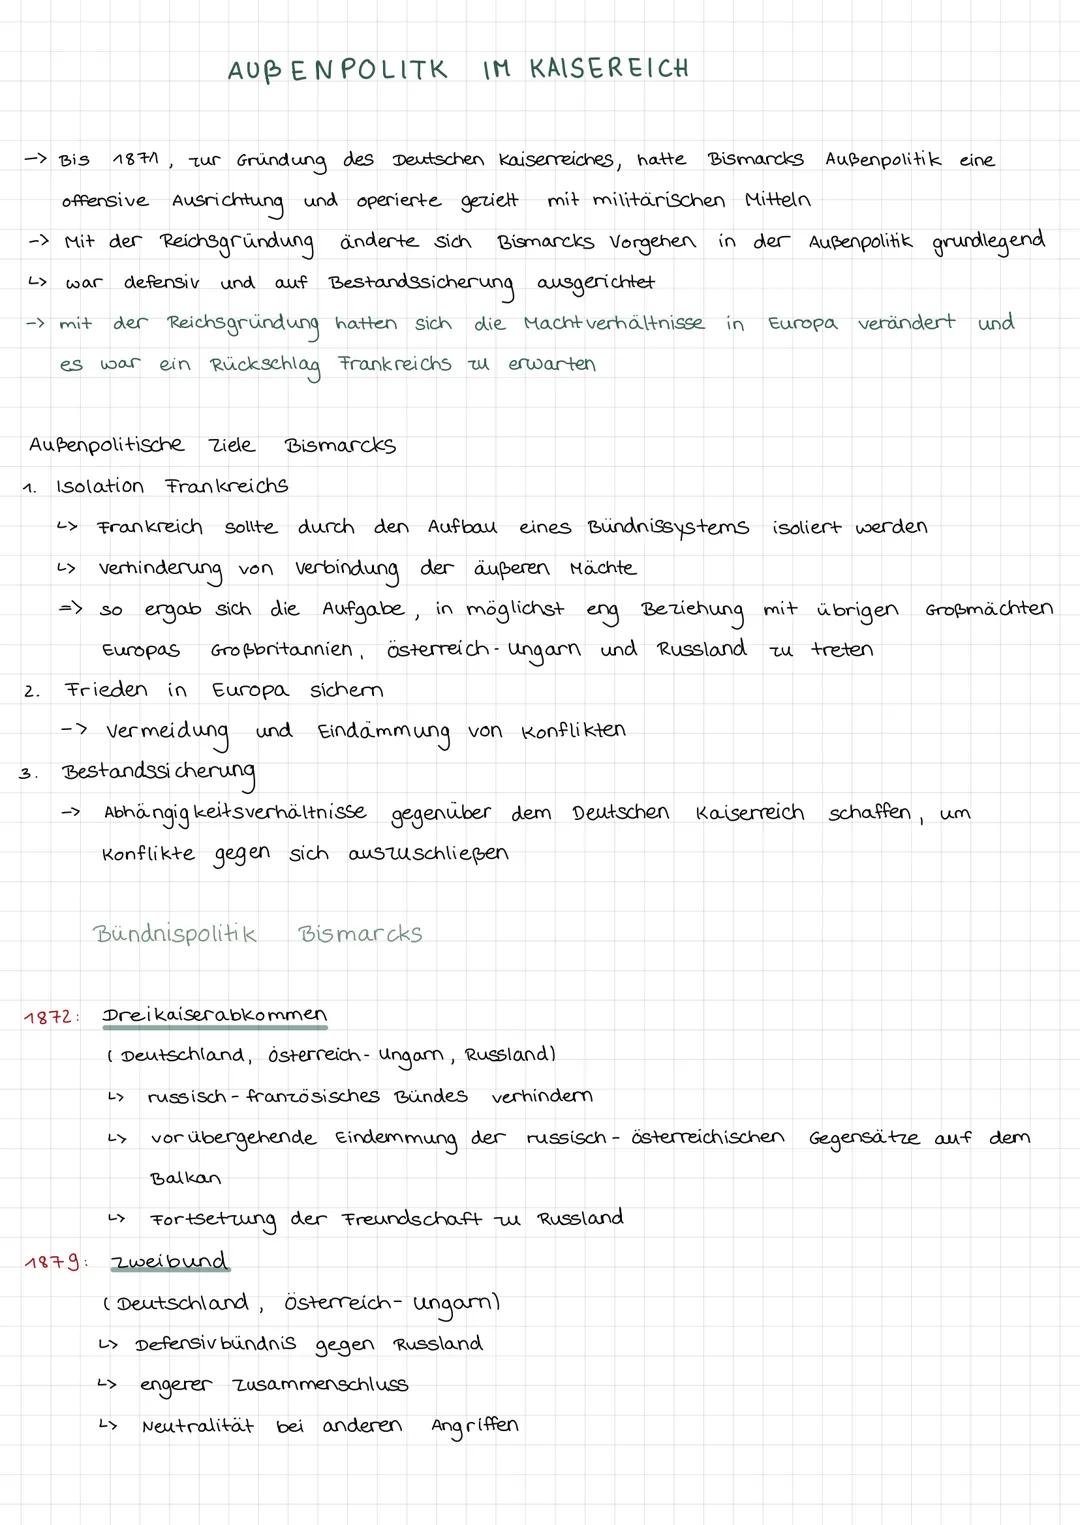 AUßENPOLITK IM KAISEREICH
-> Bis 1871, zur Gründung des Deutschen Kaiserreiches, hatte Bismarcks Außenpolitik eine
offensive Ausrichtung und operierte gezielt mit militärischen Mitteln
-> Mit der Reichsgründung änderte sich Bismarcks Vorgehen in der Außenpolitik grundlegend
↳ war defensiv und auf Bestandssicherung ausgerichtet
-> mit der Reichsgründung hatten sich die Machtverhältnisse in Europa verändert und
es war ein Rückschlag Frankreichs zu erwarten
Außenpolitische Ziele Bismarcks
1. Isolation Frankreichs
↳ Frankreich sollte durch den Aufbau eines Bündnissystems isoliert werden
↳ Verhinderung von Verbindung der äußeren Mächte
=> so ergab sich die Aufgabe, in möglichst eng Beziehung mit übrigen Großmächten
Europas Großbritannien, Österreich-Ungarn und Russland zu treten
2. Frieden in Europa sichern
-> Vermeidung und Eindämmung von Konflikten
3. Bestandssicherung
-> Abhängigkeitsverhältnisse gegenüber dem Deutschen Kaiserreich schaffen, um
Konflikte gegen sich auszuschließen
Bündnispolitik Bismarcks
1872: Dreikaiserabkommen
(Deutschland, Österreich-Ungarn, Russland)
↳ russisch-französisches Bündes verhindern
↳ vorübergehende Eindemmung der russisch-österreichischen Gegensätze auf dem
Balkan
↳ Fortsetzung der Freundschaft zu Russland
1879: Zweibund
(Deutschland, Österreich-Ungarn)
↳ Defensivbündnis gegen Russland
↳ engerer Zusammenschluss
↳ Neutralität bei anderen Angriffen